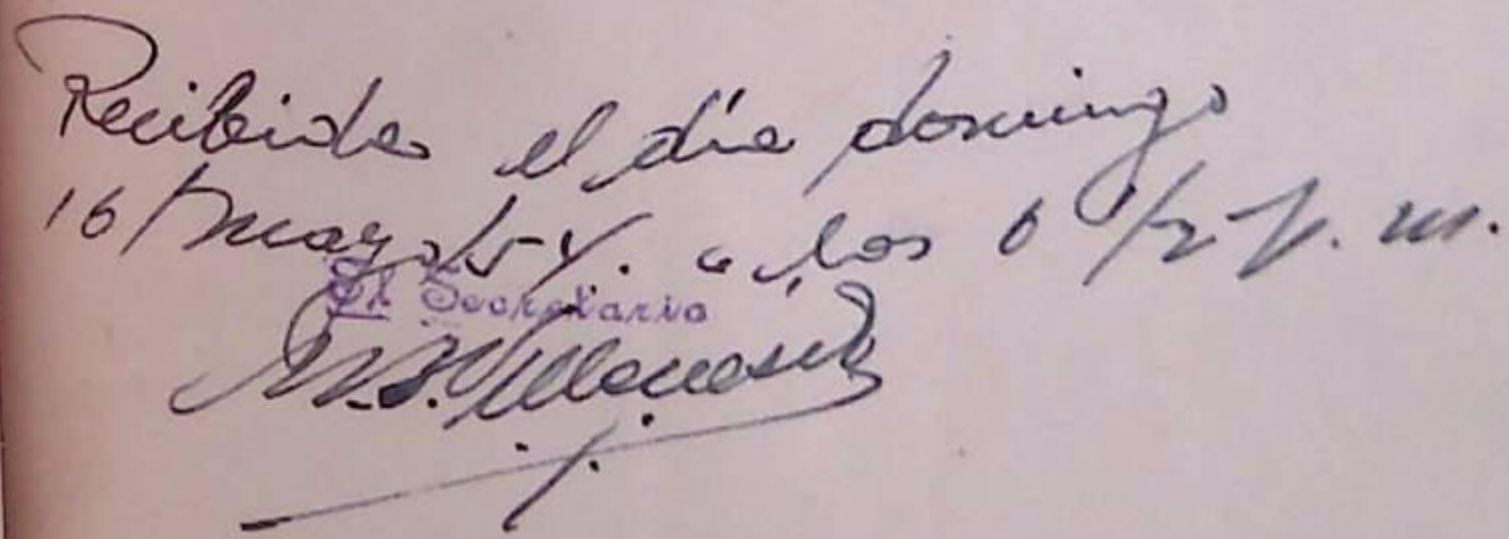 Recibida el día domingo
16/mayo/54. a las 6 1/2 p.m.
El Secretario